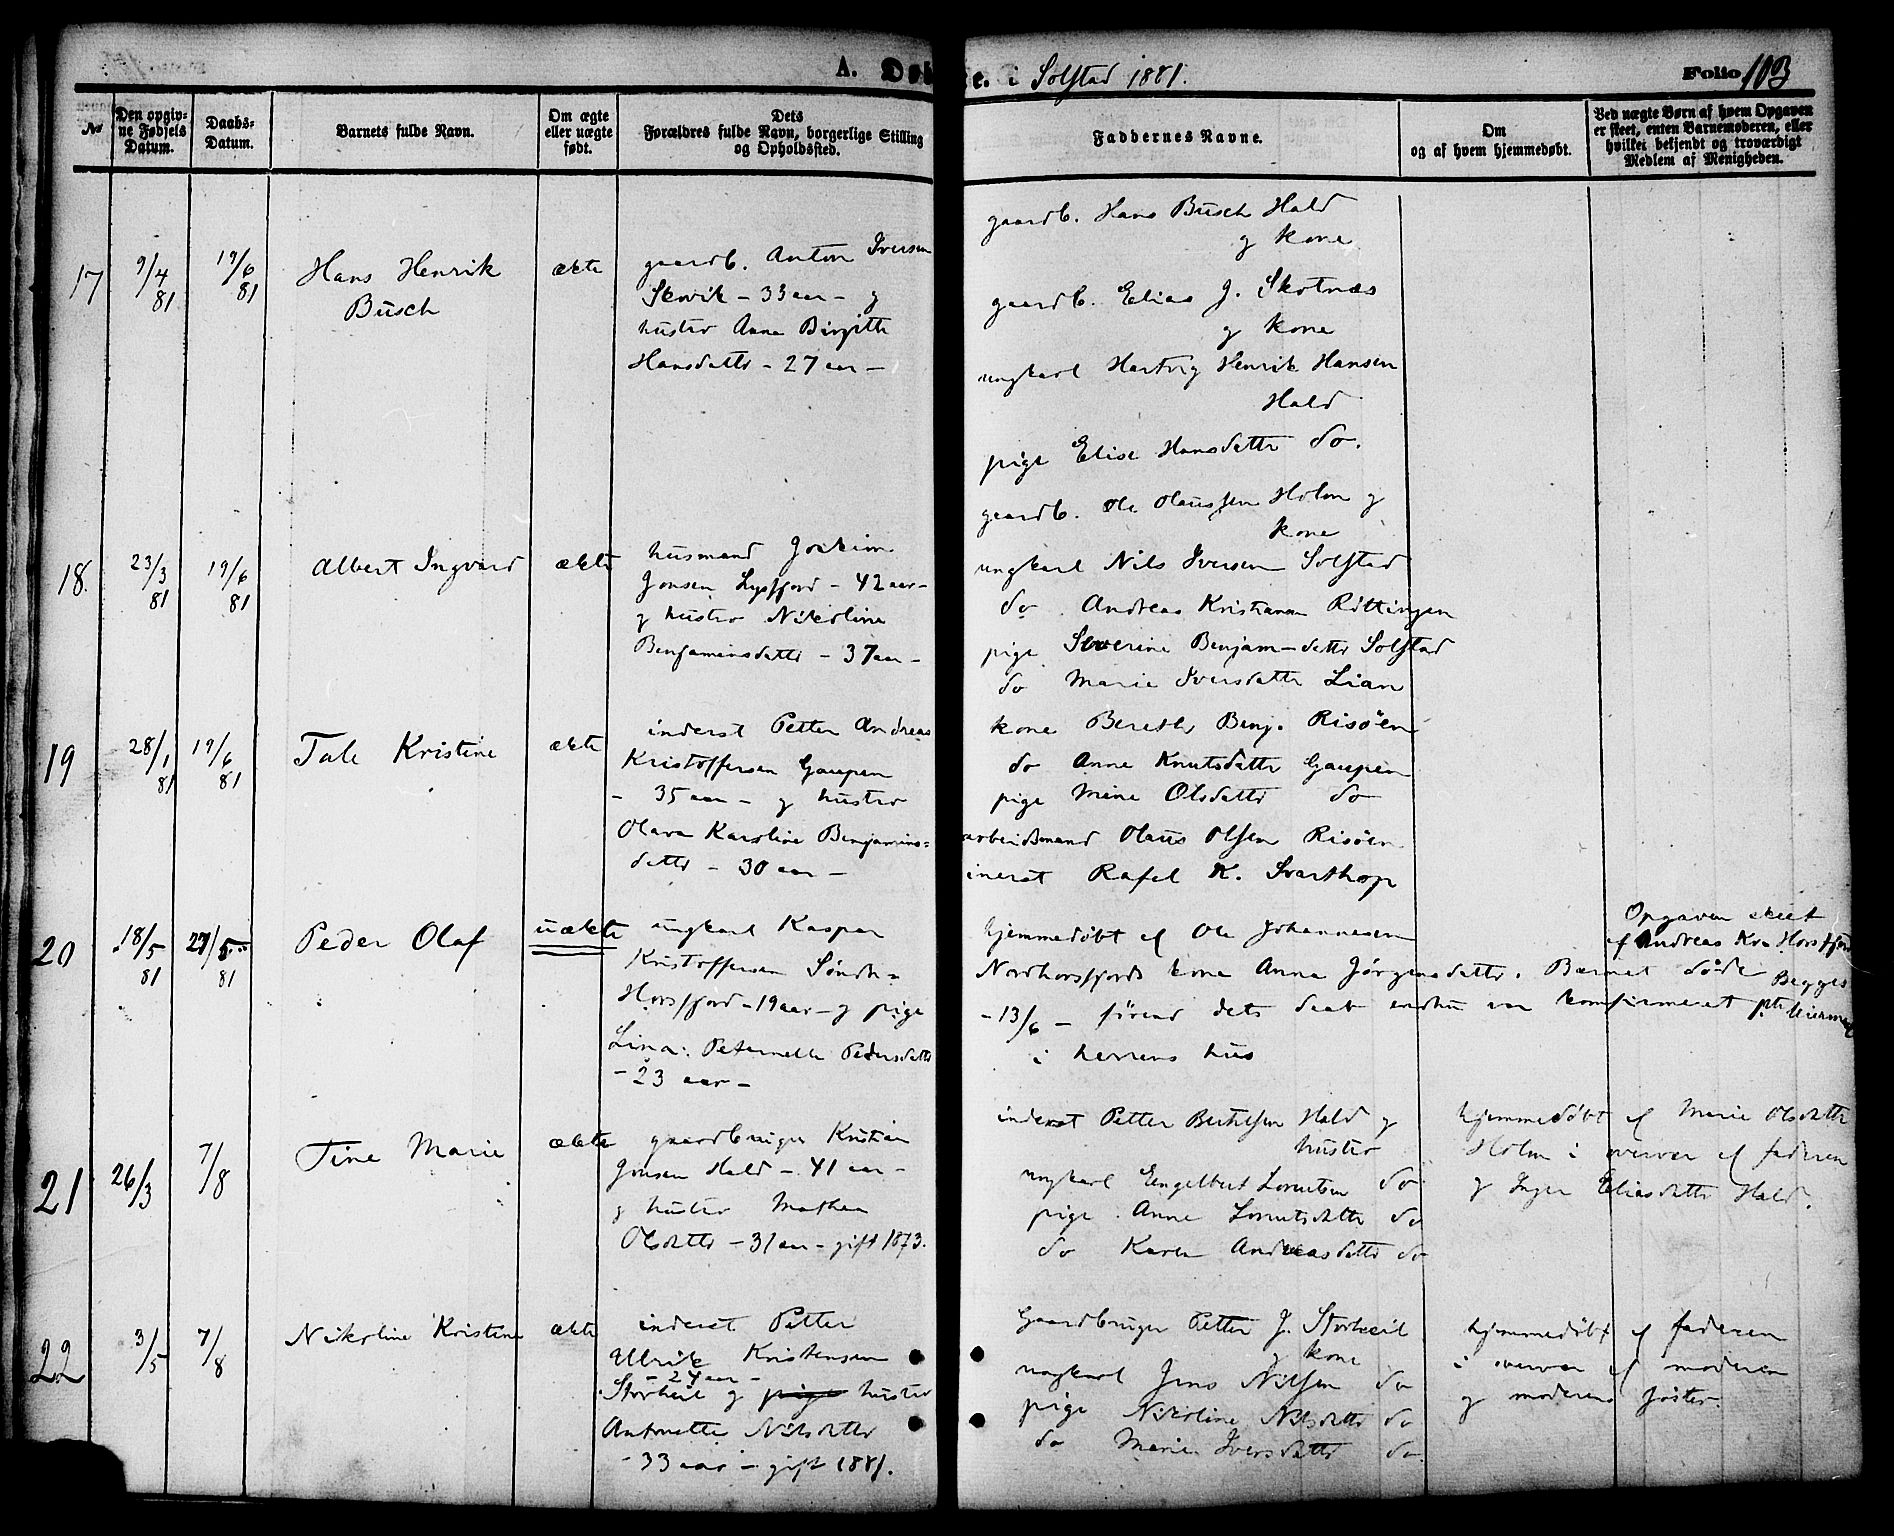 A. Døbte. i Solstad 1881.
Folio 103
No
Den opgivne Fødsels Datum.
Daabs-Datum.
Barnets fulde Navn.
Om ægte eller uægte født.
Dets Forældres fulde Navn, borgerlige Stilling og Opholdssted.
Faddernes Navne.
Om og af hvem hjemmedøbt.
Ved uægte Børn af hvem Opgaven er skeet, enten Barnemoderen, eller hvilket bekjendt og troværdigt Medlem af Menigheden.
17
9/4 81
19/6 81
Hans Henrik
Busch
ækte
gaardb. Anton Iversen
Skrvik - 33 aar - g
hustro Anna Birgitte
Hansdatter - 27 aar -
gaardb. Hans Busch Hald
g kone
gaardb. Elias J. Skotnæs
g kone
ungkarl Hartvig Henrik Hansen
Hald
pige Elise Hansdatter do.
gaardb. Ole Olaussen Holm g
kone
18.
23/3 81
19/6 81
Albert Ingvard
ækte
husmand Joakim
Jonsen Lysfjord - 42 aar -
g hustro Nikoline
Benjaminsdatter - 37 aar -
ungkarl Nils Iversen Solstad
do Andreas Kristiansen Røttingen
pige Severine Benjam-datter Solstad
do Marie Iversdatter Lian
19
28/1 81
19/6 81
Tale Kristine
ækte
inderst Petter Andreas
Kristoffersen Gaupen
- 35 aar - g hustro
Olava Karoline Benjamins=
datter - 30 aar -
kone Berethe Benj. Risøen
do Anne Knutsdatter Gaupen
pige Mine Olsdatter do
arbeidsmand Olaus Olsen Risøen
inerst Rafel K. Svarthop
20
18/5 81
27/5 81
Peder Olaf
uækte
ungkarl Kaspar
Kristoffersen Søndr=
Horsfjord - 19 aar - g pige
Lina: Peternelle Pedersdatter
- 23 aar -
hjemmedøbt af Ole Johannesen
Nordhorsfjords kone Anna Jørgensdatter. Barnet døde
- 13/6 - førend dets daab endnu var konfirmeret
i herrens hus
Opgaven skeet
af Andreas Kr. Horsfjord
Begges
21
26/3
7/8
Tine Marie
ækte
gaardbruger Kristian
Jonsen Hald - 41 aar -
g hustro Mathea
Olsdatter - 31 aar - gift 1873.
inderst Petter Bertelsen Hald g
hustro
ungkarl Engelbert Lorntsen do
pige Anne Lorntsdatter do
do Karen Andreasdatter do
hjemmedøbt af Marie Olsdatter
Holm i overvær af faderen
g Inger Eliasdatter Hald.
22
3/5
7/8
Nikoline Kristine
ækte
inderst Petter
Ulrik Kristensen
- 24 aar -
Storheil g pige hustro
Antonette Nilsdatter
- 33 aar - gift 1881.
Gaardbruger Petter J. Storheil
g kone
ungkarl Jens Nilsen do
pige Nikoline Nilsdatter do
do Marie Iversdatter do
hjemmedøbt af faderen
i overvær af moderen
g moderens søster.